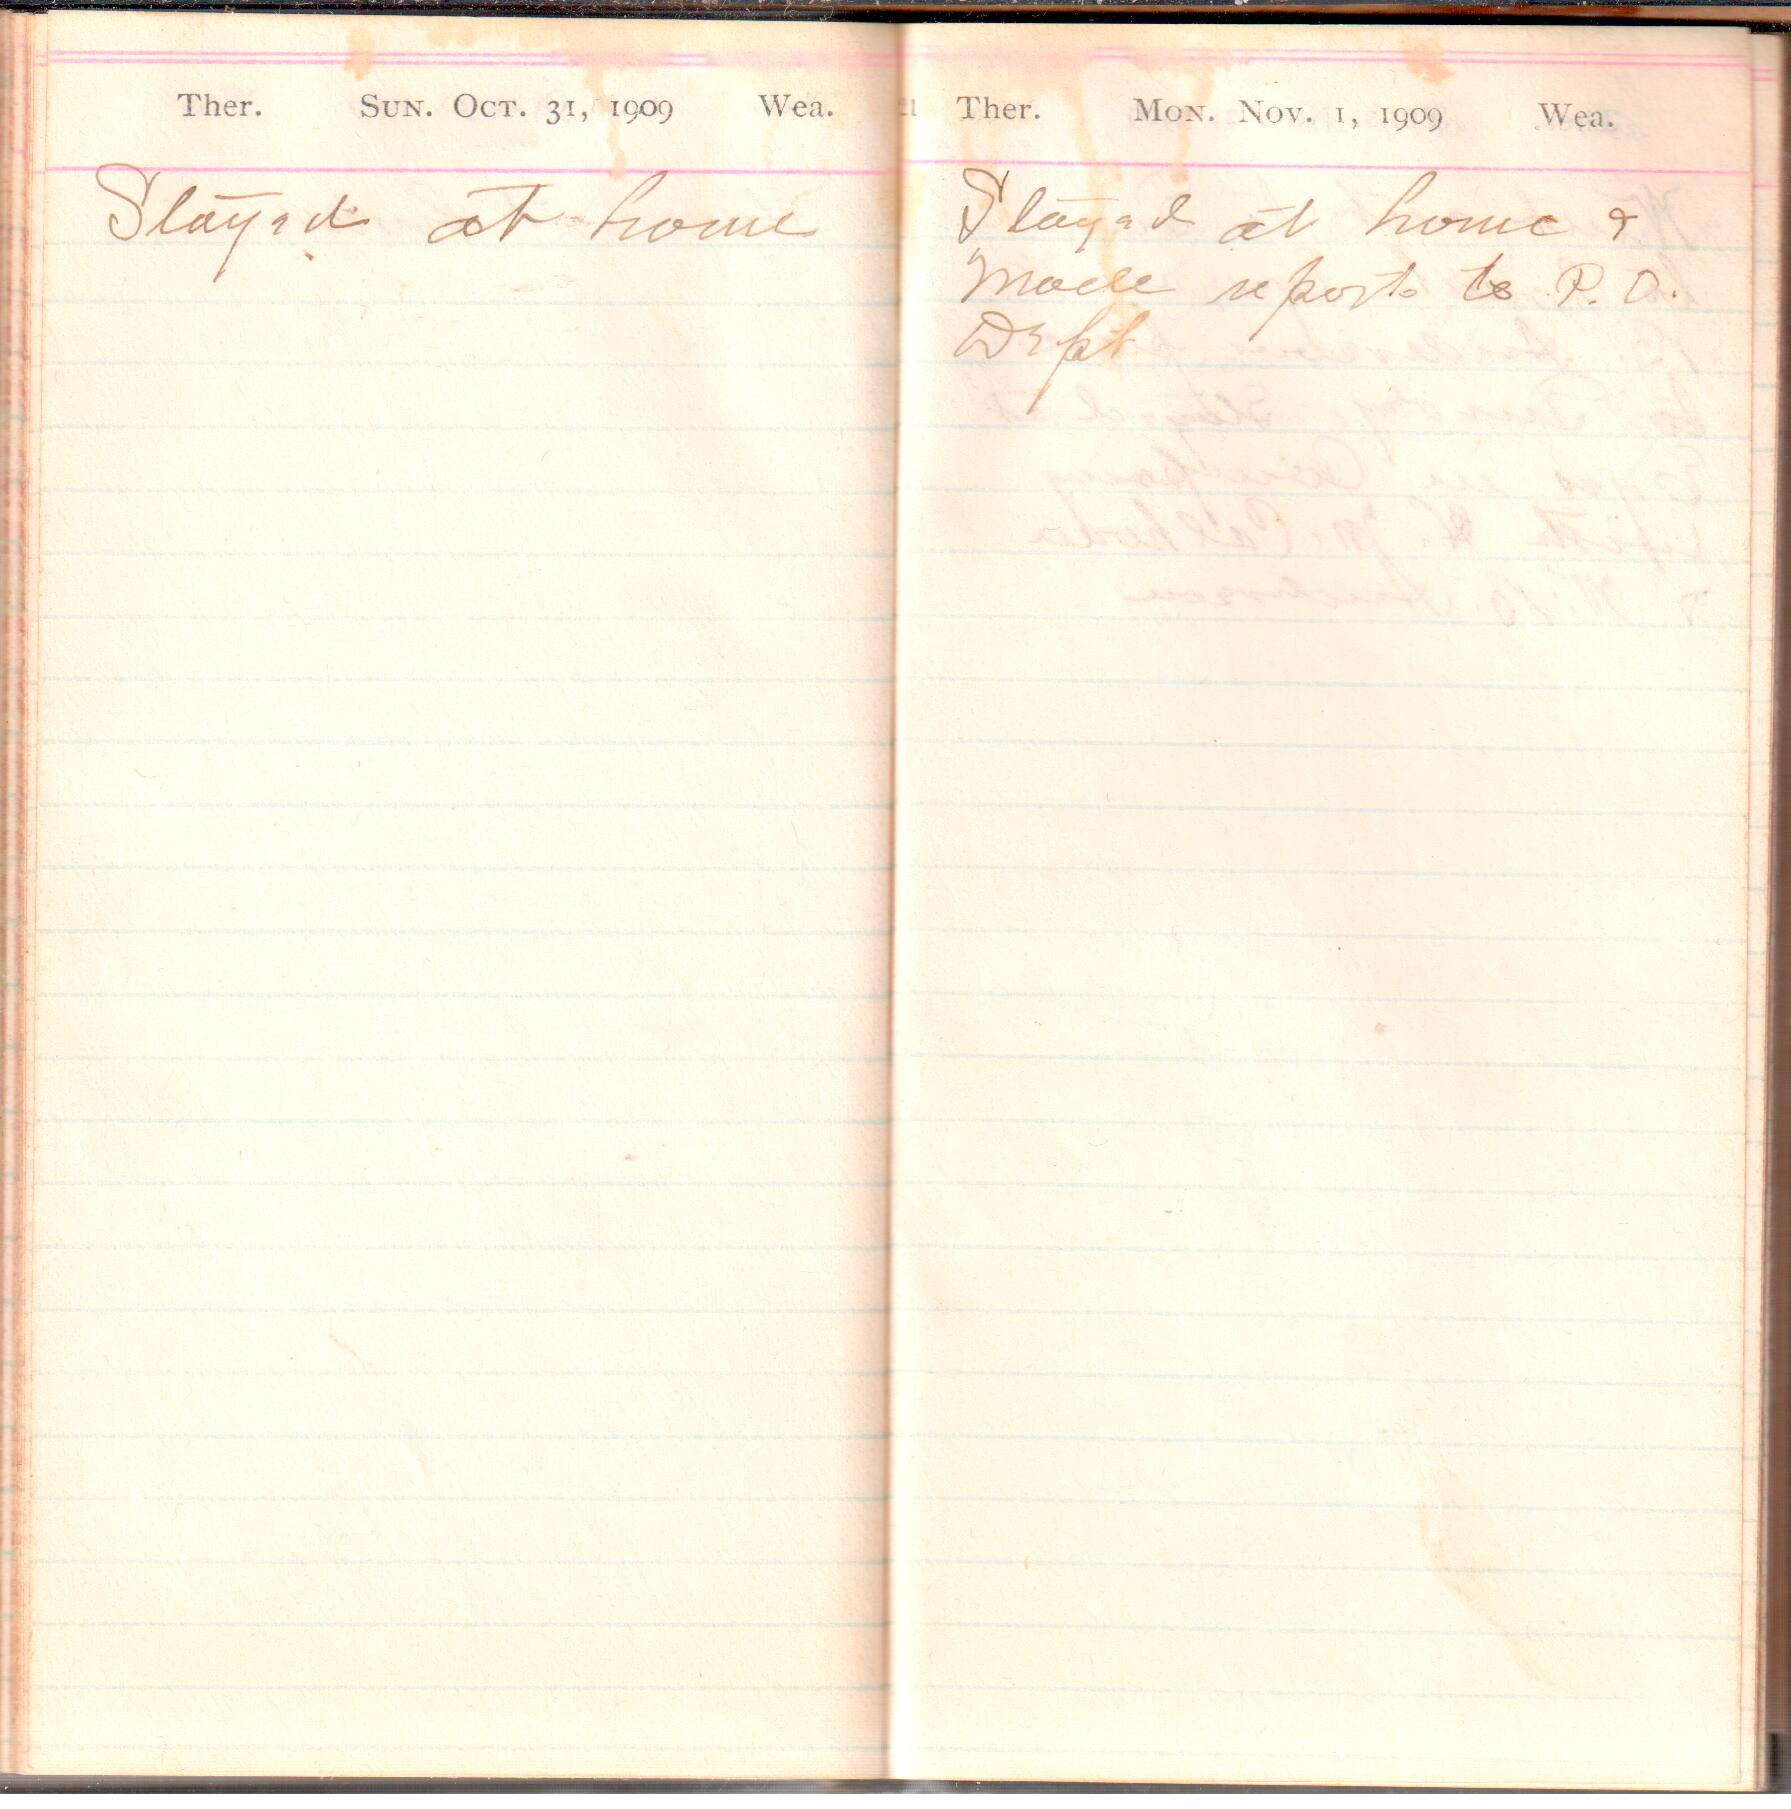 Ther. Sun. Oct. 31, 1909 Wea.
Stayed at home
Ther. Mon. Nov. 1, 1909 Wea.
Stayed at home &
Made reports to P. O.
Dept